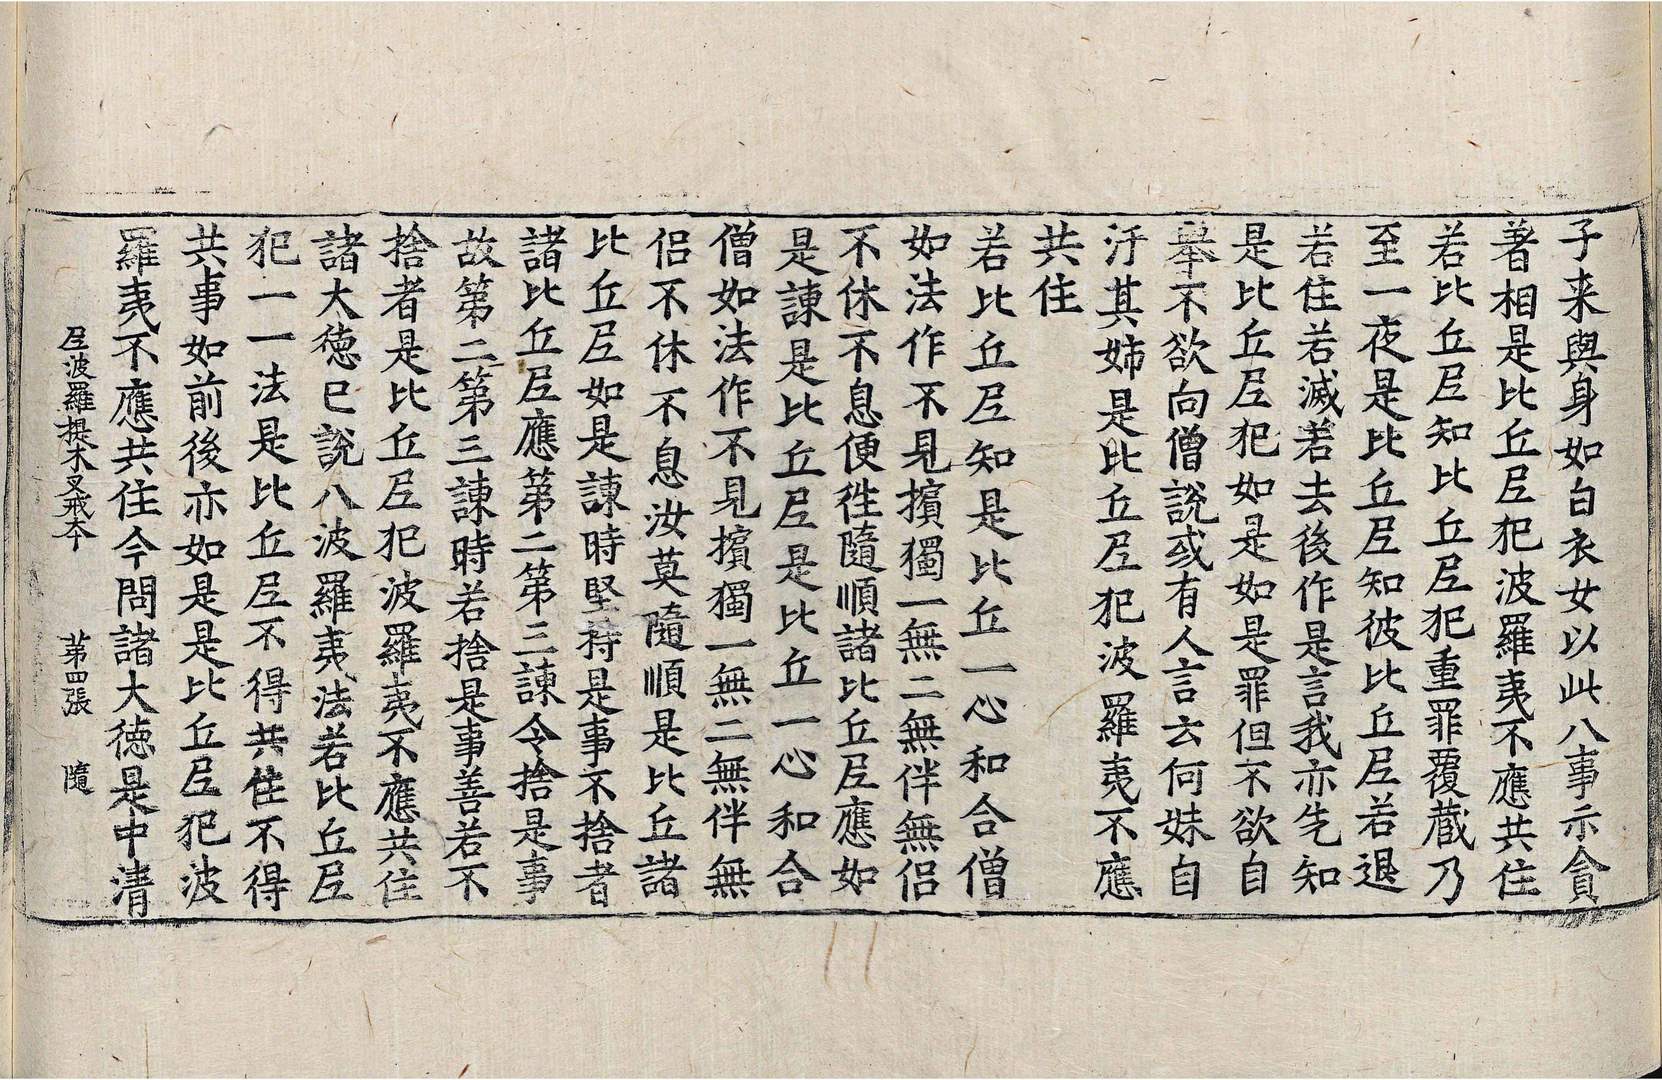 子来與身如白衣女以此八事示貪
著相是比丘𡰱犯波羅夷不應共住
若比丘𡰱知比丘𡰱犯重罪覆蔵乃
至一夜是比丘𡰱知彼比丘𡰱若退
若住若滅若去後作是言我亦先知
是比丘𡰱犯如是如是罪但不欲自
舉不欲向僧說或有人言云何妹自
汙其姊是比丘𡰱犯波羅夷不應
共住
若比丘𡰱知是比丘一心和合僧
如法作不見擯獨一無二無伴無侣
不休不息便徃隨順諸比丘𡰱應如
是諫是比丘𡰱是比丘一心和合
僧如法作不見擯獨一無二無伴無
侣不休不息汝莫隨順是比丘諸
比丘𡰱如是諫時堅持是事不捨者
諸比丘𡰱應第二第三諫令捨是事
故第二第三諫時若捨是事善若不
捨者是比丘𡰱犯波羅夷不應共住
諸大徳已說八波羅夷法若比丘𡰱
犯一一法是比丘𡰱不得共住不得
共事如前後亦如是是比丘𡰱犯波
羅夷不應共住今問諸大徳是中清
𡰱波羅提木叉戒本 第四張 隨